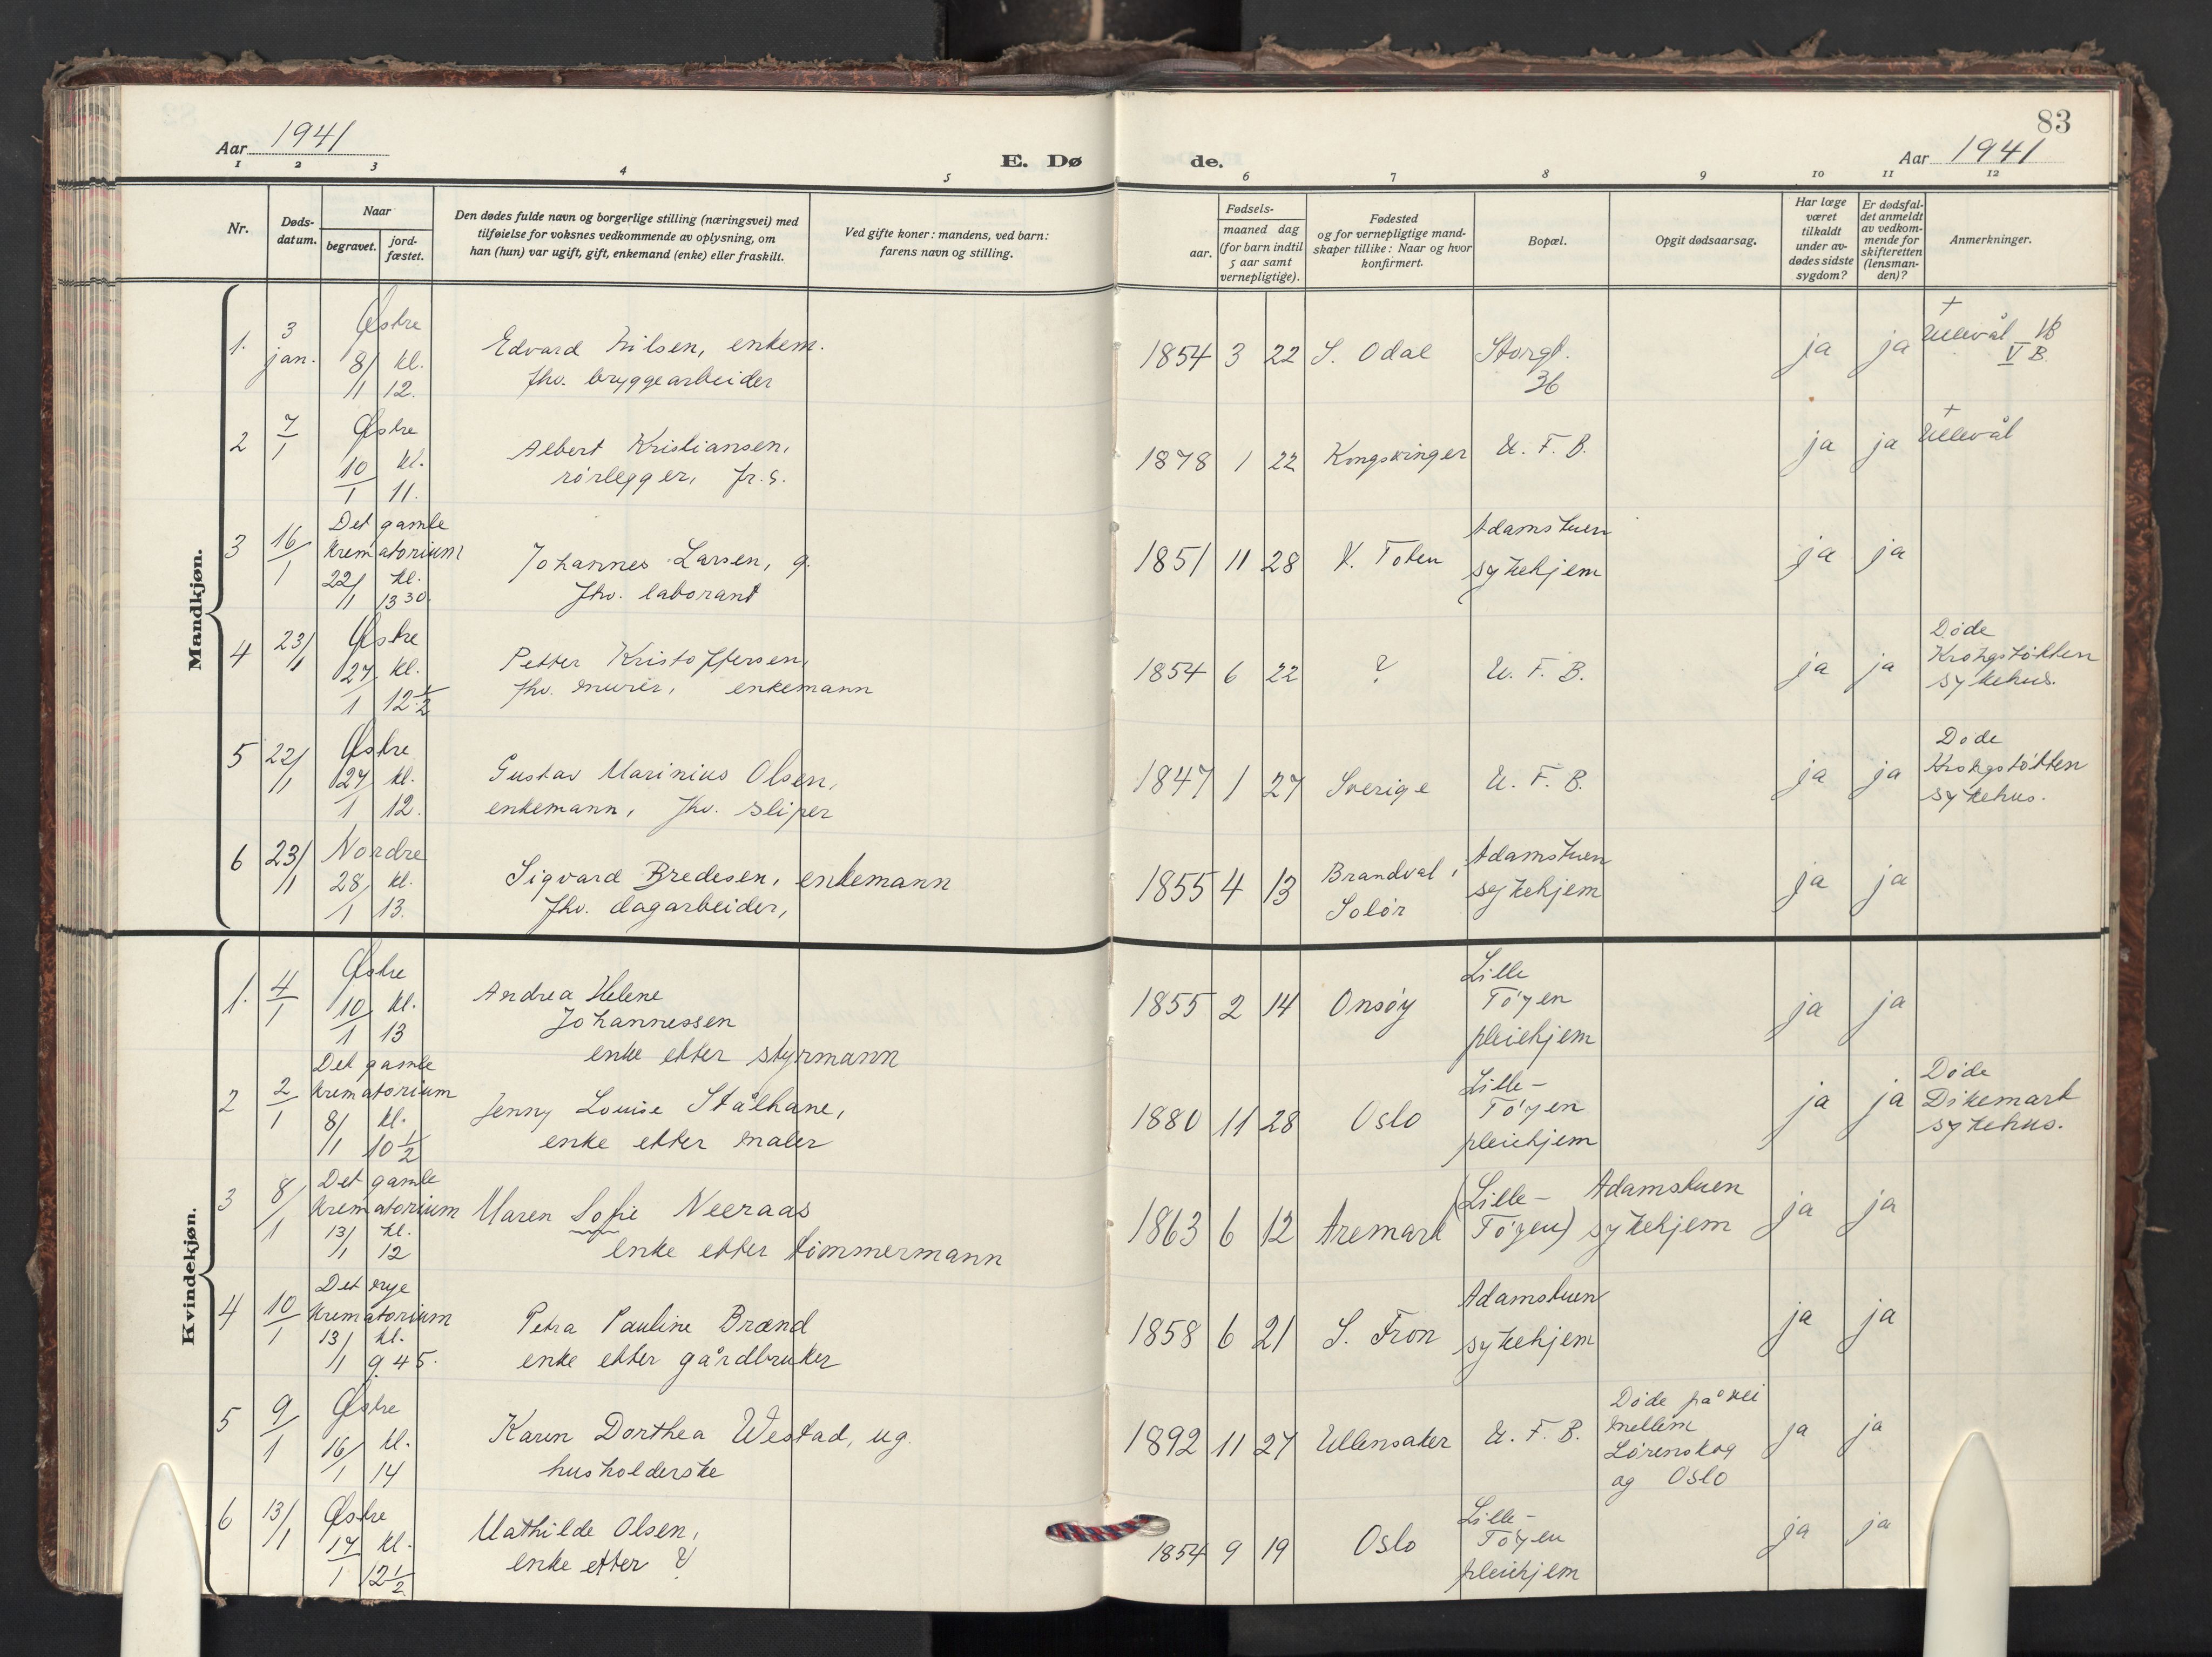 83
Aar 1941
E. Dø
de.
Aar 1941
1 2 3 4 5 6 7 8 9 10 11 12
Nr.
Døds-
datum.
Naar
begravet.
jord-
fæstet.
Den dødes fulde navn og borgerlige stilling (næringsvei) med
tilføielse for voksnes vedkommende av oplysning, om
han (hun) var ugift, gift, enkemand (enke) eller fraskilt.
Ved gifte koner: mandens, ved barn:
farens navn og stilling.
Fødsels-
aar.
maaned dag
(for barn indtil
5 aar samt
vernepligtige).
Fødested
og for vernepligtige mand-
skaper tillike: Naar og hvor
konfirmert.
Bopæl.
Opgit dødsaarsag.
Har læge
været
tilkaldt
under av-
dødes sidste
sygdom?
Er dødsfal-
det anmeldt
av vedkom-
mende for
skifteretten
(lensman-
den)?
Anmerkninger.
Mandkjøn.
1. 3 jan.
Østre
8/1 kl. 12.
Edvard Nilsen, enkem.
fhv. bryggearbeider
1854 3 22 S. Odal
Storgt.
36
ja ja
+
Ullevål
V B.
2 7/1
Østre
10/1 kl. 11.
Albert Kristiansen,
rörlegger, fr.s.
1878 1 22 Kongsvinger U. F. B. ja ja
+
Ullevål
3 16/1
Det gamle
krematorium
22/1 kl. 13 30.
Johannes Larsen, g.
fhv. laborant
1851 11 28 V. Toten
Adamstuen
sykehjem
ja ja
4 23/1
Østre
27/1 kl. 12 1/2
Petter Kristoffersen,
fhv. murer, enkemann
1854 6 22 ? U. F. B. ja ja
Døde
Krohgstøtten
sykehus.
5 22/1
Østre
27/1 kl. 12.
Gustav Marinius Olsen,
enkemann, fhv. sliper
1847 1 27 Sverige U. F. B. ja ja
Døde
Krohgstøtten
sykehus.
6 23/1
Nordre
28/1 kl. 13.
Sigvard Bredesen, enkemann
fhv. dagarbeider,
1855 4 13
Brandval,
Solør
Adamstuen
sykehjem
ja ja
Kvindekjøn.
1. 4/1
Østre
10/1 kl. 13
Andrea Helene
Johannessen
enke etter styrmann
1855 2 14 Onsøy
Lille
Tøyen
pleiehjem
ja ja
2 2/1
Det gamle
krematorium
8/1 kl. 10 1/2
Jenny Louise Stålhane,
enke etter maler
1880 11 28 Oslo
Lille-
Tøyen
pleiehjem
ja ja
Døde
Dikemark
sykehus.
3 8/1
Det gamle
krematorium
13/1 kl. 12
Maren Sofie Neeraas
enke etter tømmermann
1863 6 12 Aremark
(Lille-
Tøyen)
Adamstuen
sykehjem
ja ja
4 10/1
Det nye
krematorium
13/1 kl. 9 45.
Petra Pauline Brænd
enke etter gårdbruker
1858 6 21 S. Fron
Adamstuen
sykehjem
ja ja
5 9/1
Østre
16/1 kl. 14
Karen Dorthea Westad, ug.
husholderske
1892 11 27 Ullensaker U. F. B.
Døde på vei
mellem
Lørenskog
og Oslo
ja ja
6 13/1
Østre
17/1 kl. 12 1/2
Mathilde Olsen,
enke etter ?
1854 9 19 Oslo
Lille-
Tøyen
pleiehjem
ja ja